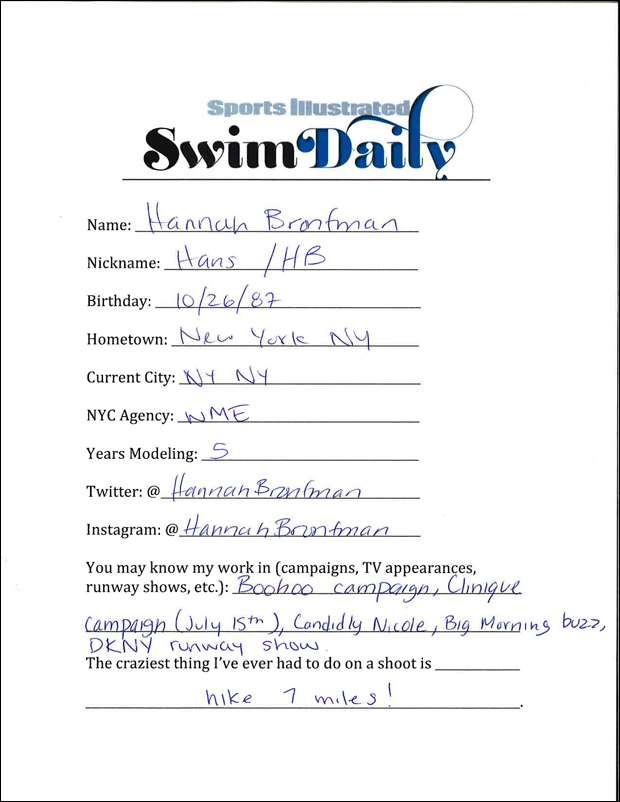 Sports Illustrated
Swim Daily
Name: Hannah Bronfman
Nickname: Hans / HB
Birthday: 10/26/87
Hometown: New York NY
Current City: NY NY
NYC Agency: WME
Years Modeling: 5
Twitter: @ HannahBronfman
Instagram: @ HannahBronfman
You may know my work in (campaigns, TV appearances,
runway shows, etc.): Boohoo campaign, Clinique
campaign (July 15th), Candidly Nicole, Big Morning buzz,
DKNY runway show
The craziest thing I've ever had to do on a shoot is
hike 7 miles!